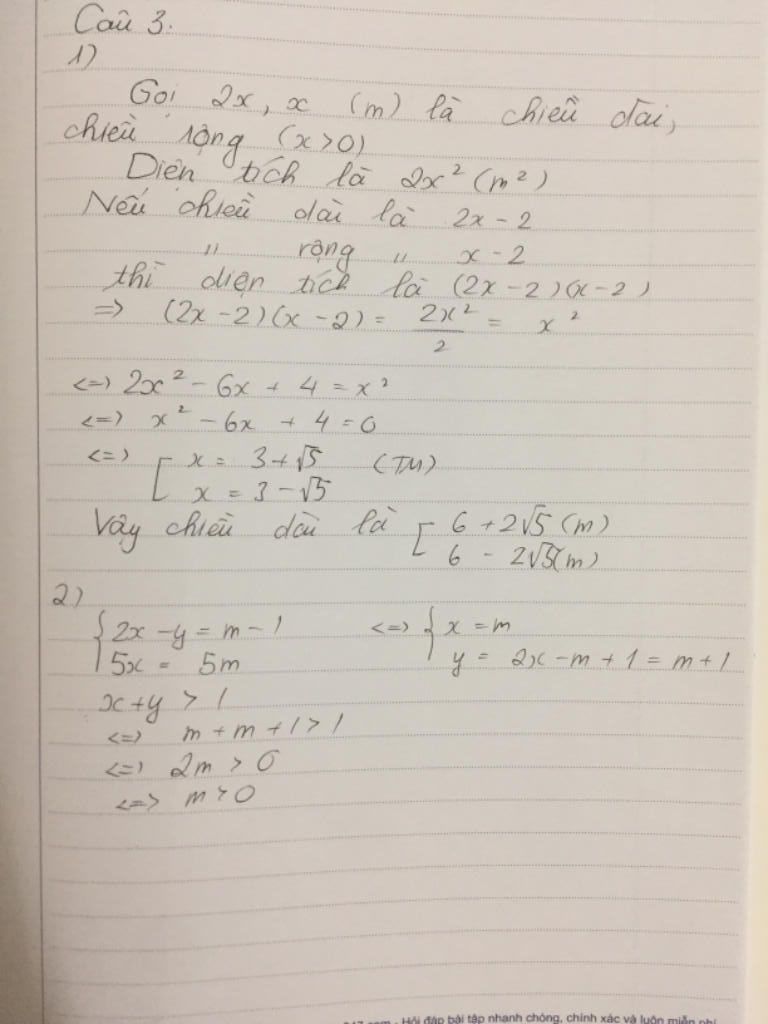 Câu 3.
1)
Gọi 2x, x (m) là chiều dài,
chiều rộng (x>0)
Diện tích là 2x² (m²)
Nếu chiều dài là 2x - 2
" rộng " x - 2
thì diện tích là (2x-2)(x-2)
=> (2x-2)(x-2) = 2x²/2 = x²
<=> 2x² - 6x + 4 = x²
<=> x² - 6x + 4 = 0
<=> [ x = 3+√5 (TM)
x = 3-√5
Vậy chiều dài là [ 6 + 2√5 (m)
6 - 2√5 (m)
2)
{ 2x - y = m - 1 <=> { x = m
5x = 5m y = 2x - m + 1 = m + 1
x + y > 1
<=> m + m + 1 > 1
<=> 2m > 0
<=> m > 0
247.com - Hỏi đáp bài tập nhanh chóng, chính xác và luôn miễn phí